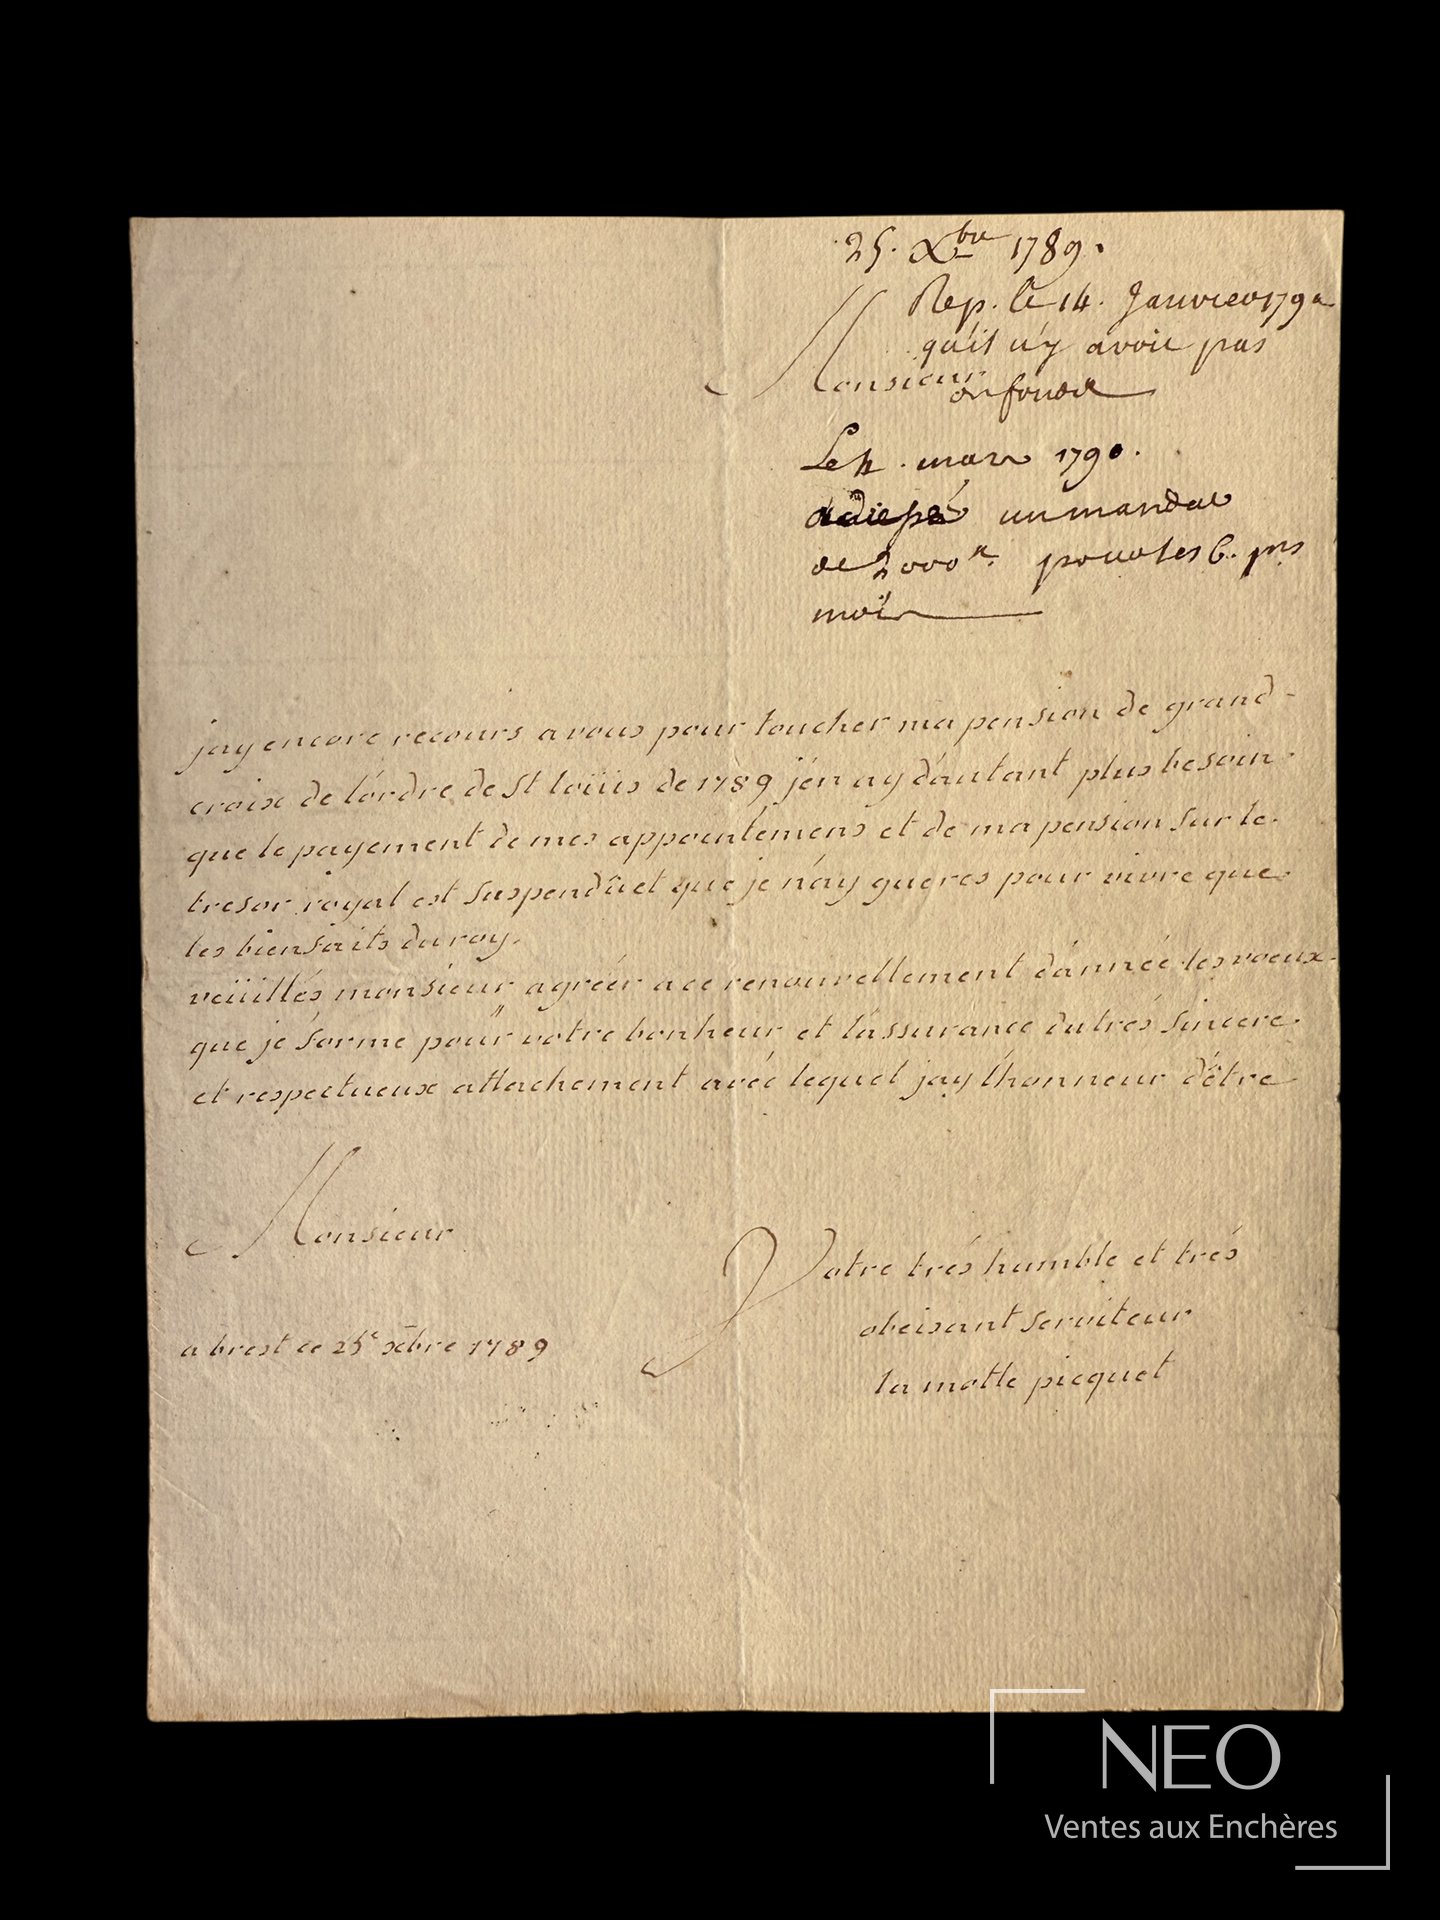 25. Xbre 1789.
Rep. le 14. Janvier 1790
qu'il n'y avoit pas
Monsieur
de fonds
Le mars 1790.
un mandat
de 2000 pour les 6. prs
mois
jay encore recours a vous pour toucher ma pension de grand-
croix de lórdre de St loüis de 1789 jén ay dáutant plus besoin
que le payement de mes appointemens et de ma pension sur le
tresor royal est suspendû et que je náy gueres pour vivre que
les bienfaits du roy.
veüillés monsieur agréer a ce renouvellement dánnée les voeux
que je forme pour votre bonheur et lássurance du trés sincere
et respectueux attachement avéc lequel jay lhonneur dêtre
Monsieur
Votre trés humble et trés
obeisant serviteur
a brest ce 25e xbre 1789
la motte picquet
NEO
Ventes aux Enchères